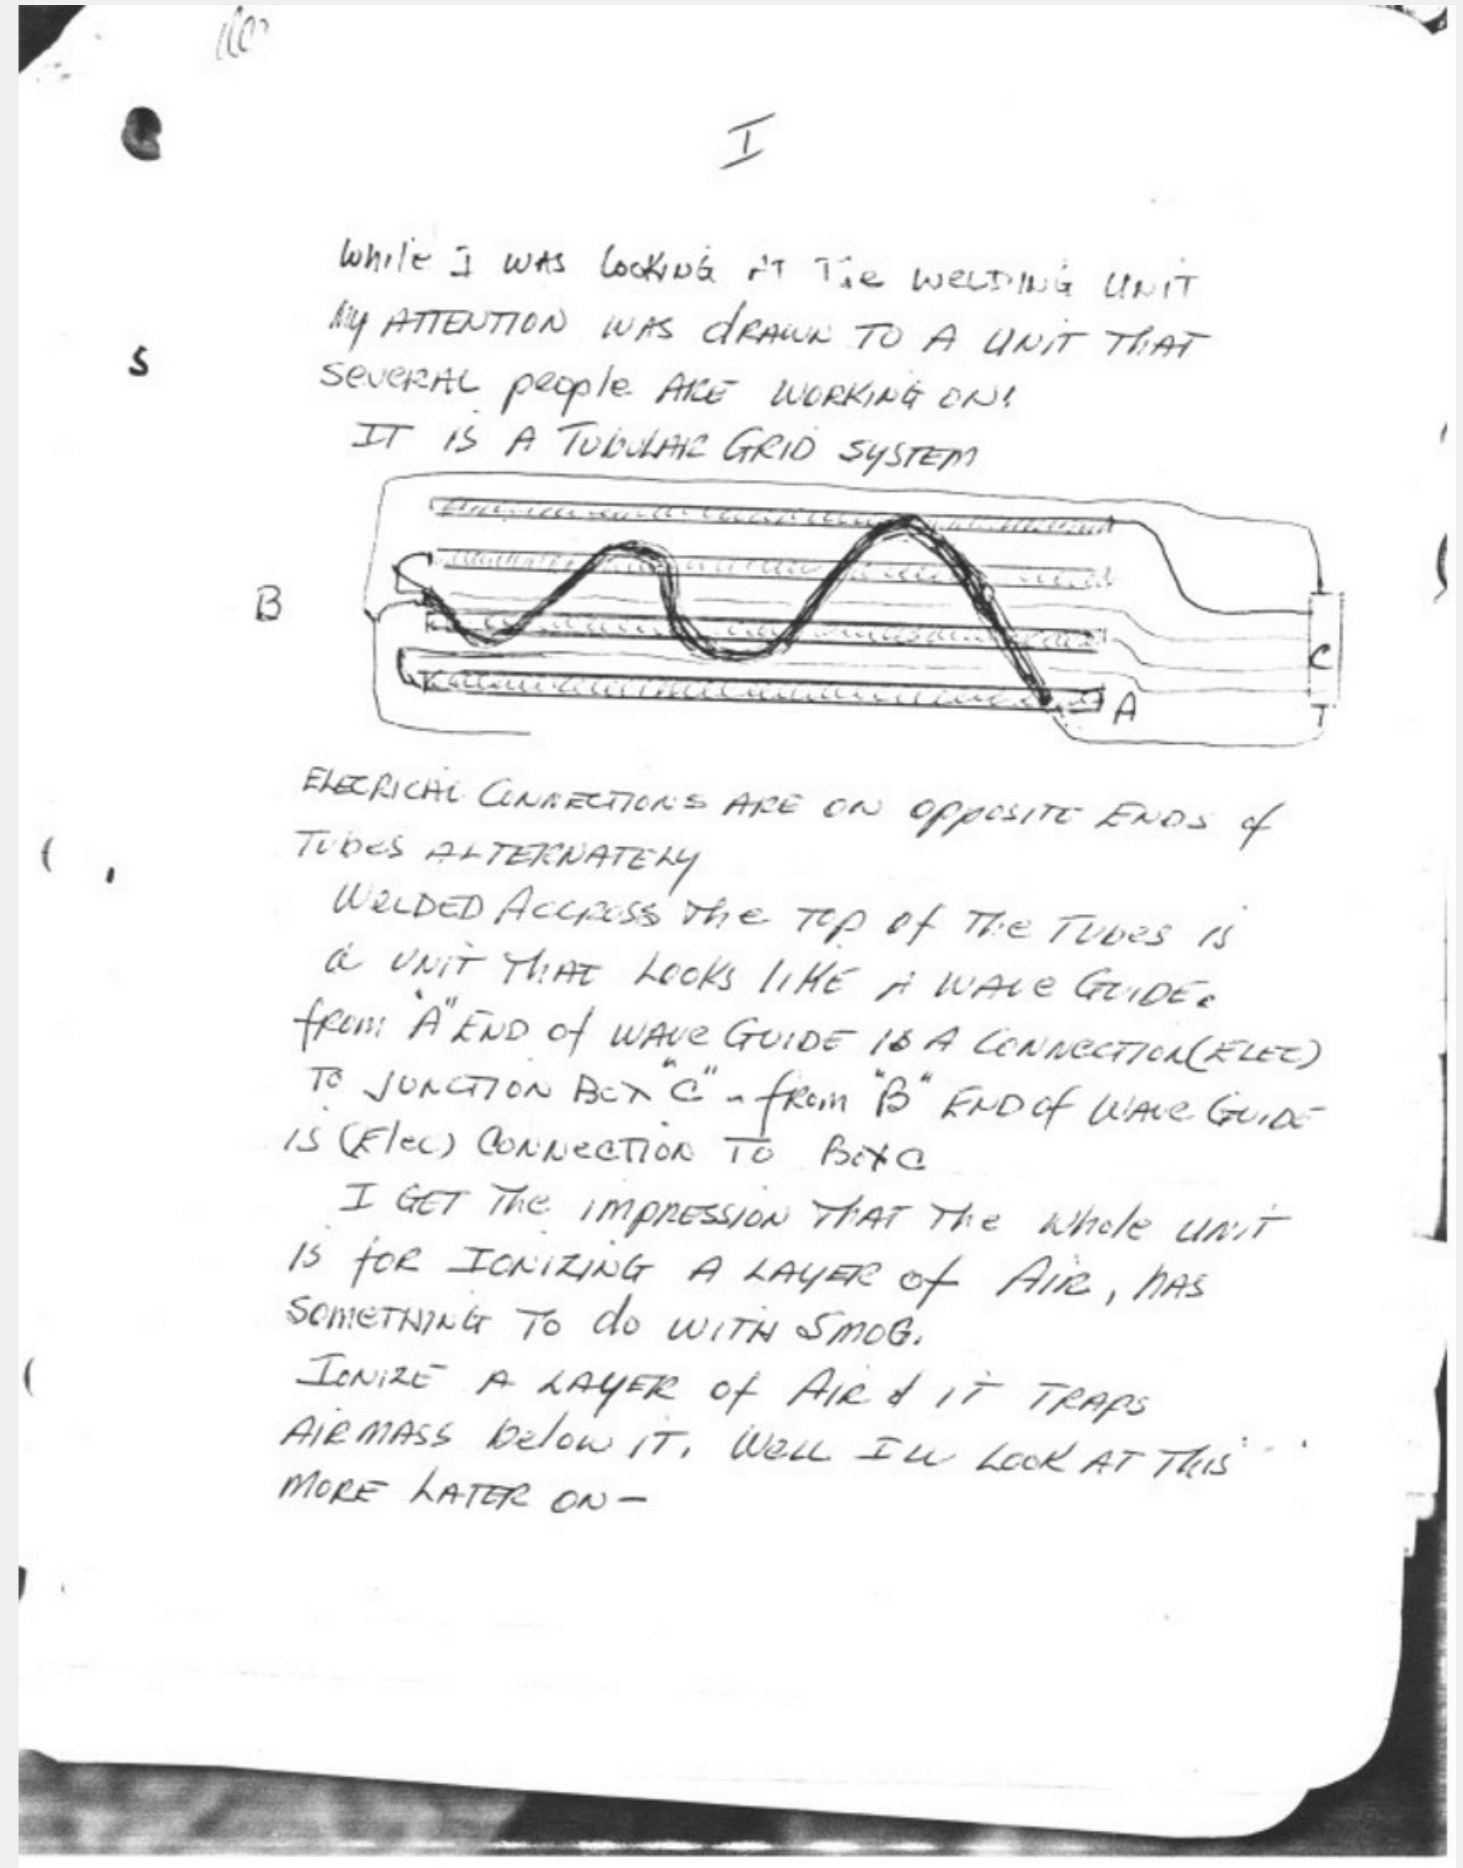 I
While I WAS LOOKING AT The WELDING UNIT
My ATTENTION WAS dRAWN TO A UNIT THAT
SEVERAL people ARE WORKING ON!
IT IS A TUBULAR GRID SYSTEM
S
B
C
A
ELECRICAL CONNECTIONS ARE ON OPPOSITE ENDS of
TUBES ALTERNATELY
WELDED ACCROSS The TOP of The TUBES is
a UNIT THAT LOOKS LIKE A WAVE GUIDE.
from "A" END of WAVE GUIDE IS A CONNECTION (ELEC)
TO JUNCTION BOX "C" - from "B" END of WAVE GUIDE
is (Elec) CONNECTION TO BOX C
I GET The IMPRESSION THAT The Whole UNIT
IS fOR IONIZING A LAYER of AIR, HAS
SOMETHING TO do WITH SMOG.
IONIZE A LAYER of AIR & IT TRAPS
AIRMASS below IT. WELL ILL LOOK AT THIS
MORE LATER ON -